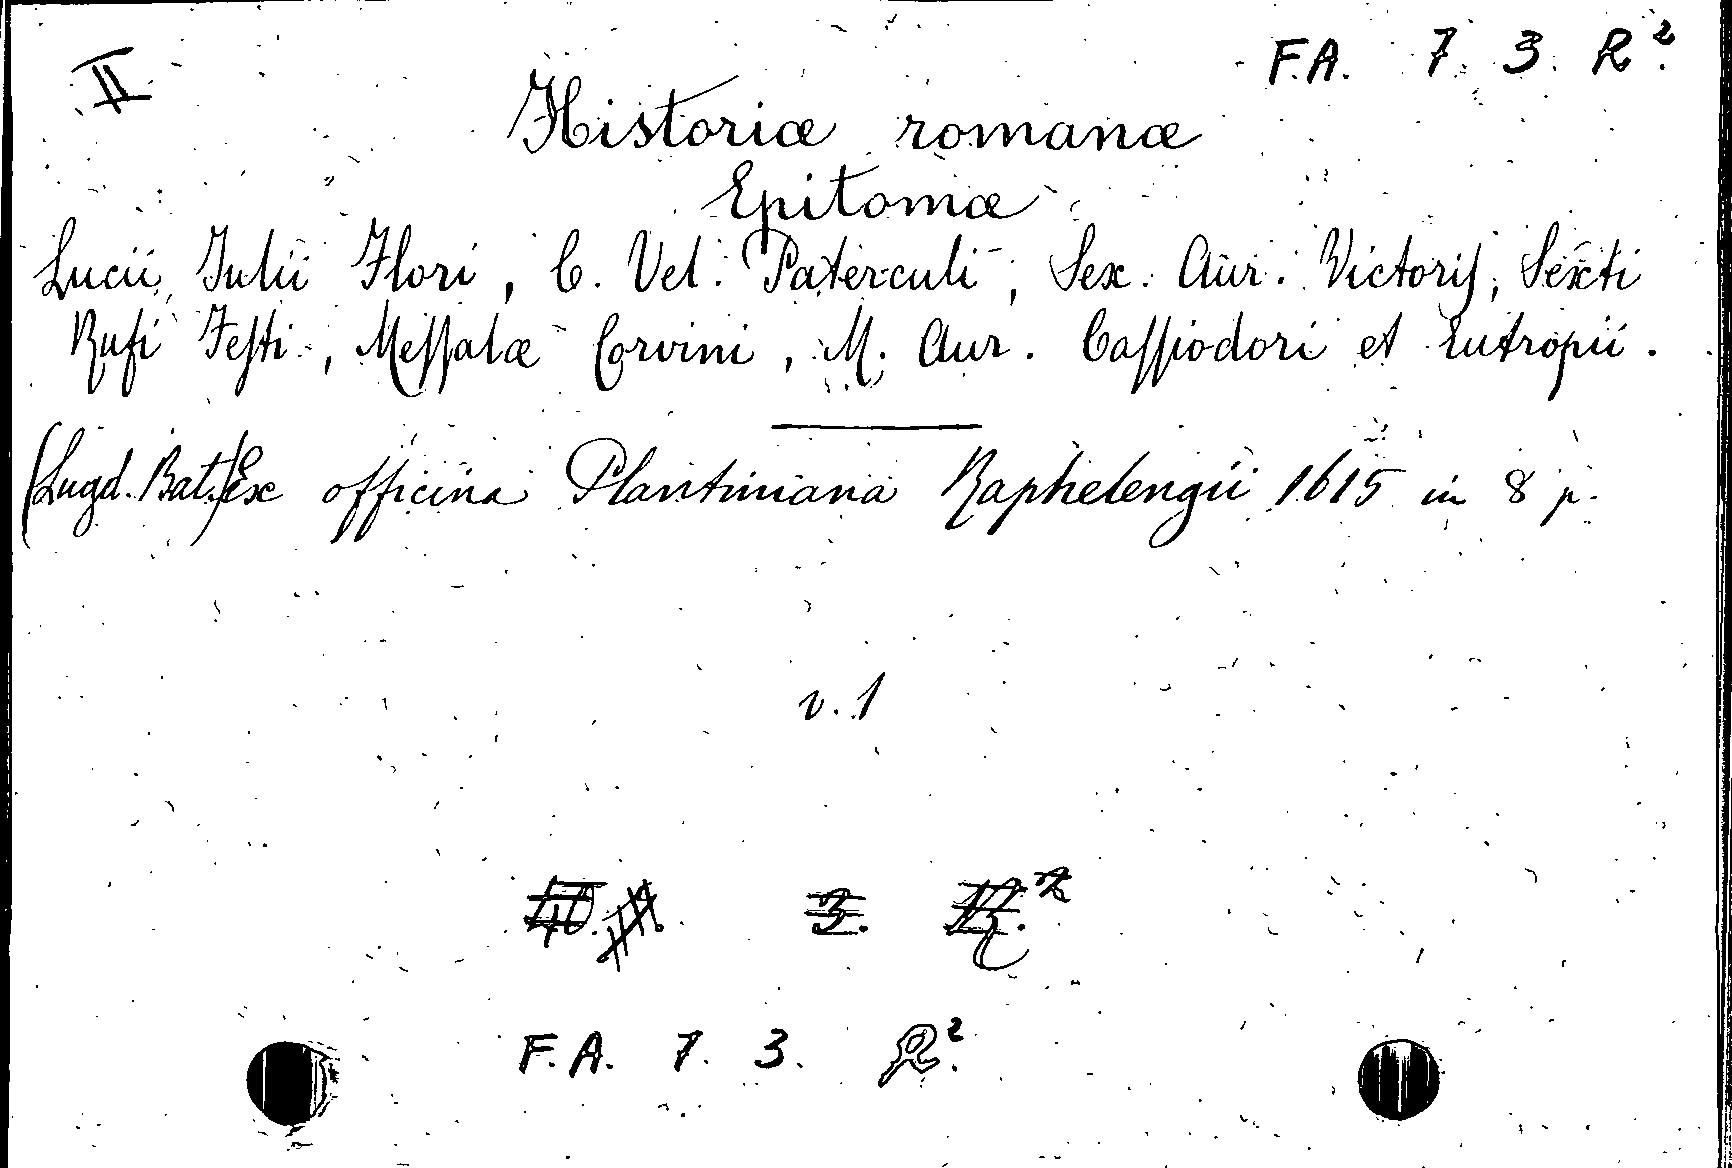 II
F.A. 7. 3. R².
Historiæ romanæ
Epitomæ
Lucii Julii Flori, C. Vel. Paterculi, Sex. Aur. Victoris, Sexti
Rufi Festi, Messalæ Corvini, M. Aur. Cassiodori et Eutropii.
(Lugd. Bat.) Ex officina Plantiniana Raphelengii 1615 in 8 p.
v. 1
3.
F.A. 7. 3. R².